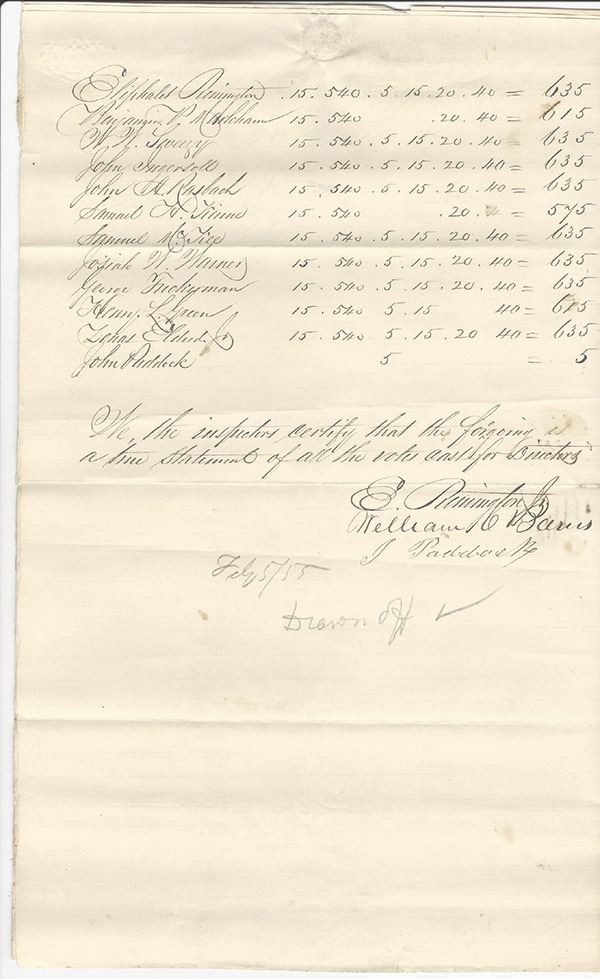 Eliphalet Remington . 15 . 540 . 5 . 15 . 20 . 40 = 635
Benjamin P. Markham 15 . 540 . 20 . 40 = 615
15 . 540 . 5 . 15 . 20 . 40 = 635
John Ingersoll 15 . 540 . 5 . 15 . 20 . 40 = 635
John H Rasbach 15 . 540 . 5 . 15 . 20 . 40 = 635
Samuel 15 . 540 . 20 . = 575
Samuel 15 . 540 . 5 . 15 . 20 . 40 = 635
Josiah W. Warner 15 . 540 . 5 . 15 . 20 . 40 = 635
George Tuckerman 15 . 540 . 5 . 15 . 20 . 40 = 635
Henry L. Green 15 . 540 5 . 15 40 = 615
Zenas Eldred Jr 15 . 540 . 5 . 15 . 20 40 = 635
John Paddock 5 = 5
We the inspectors certify that the forgoing is
a true statement of all the votes cast for Directors
E. Remington Jr
William C Barns
J Paddock
Feb 5/55
Drawn off